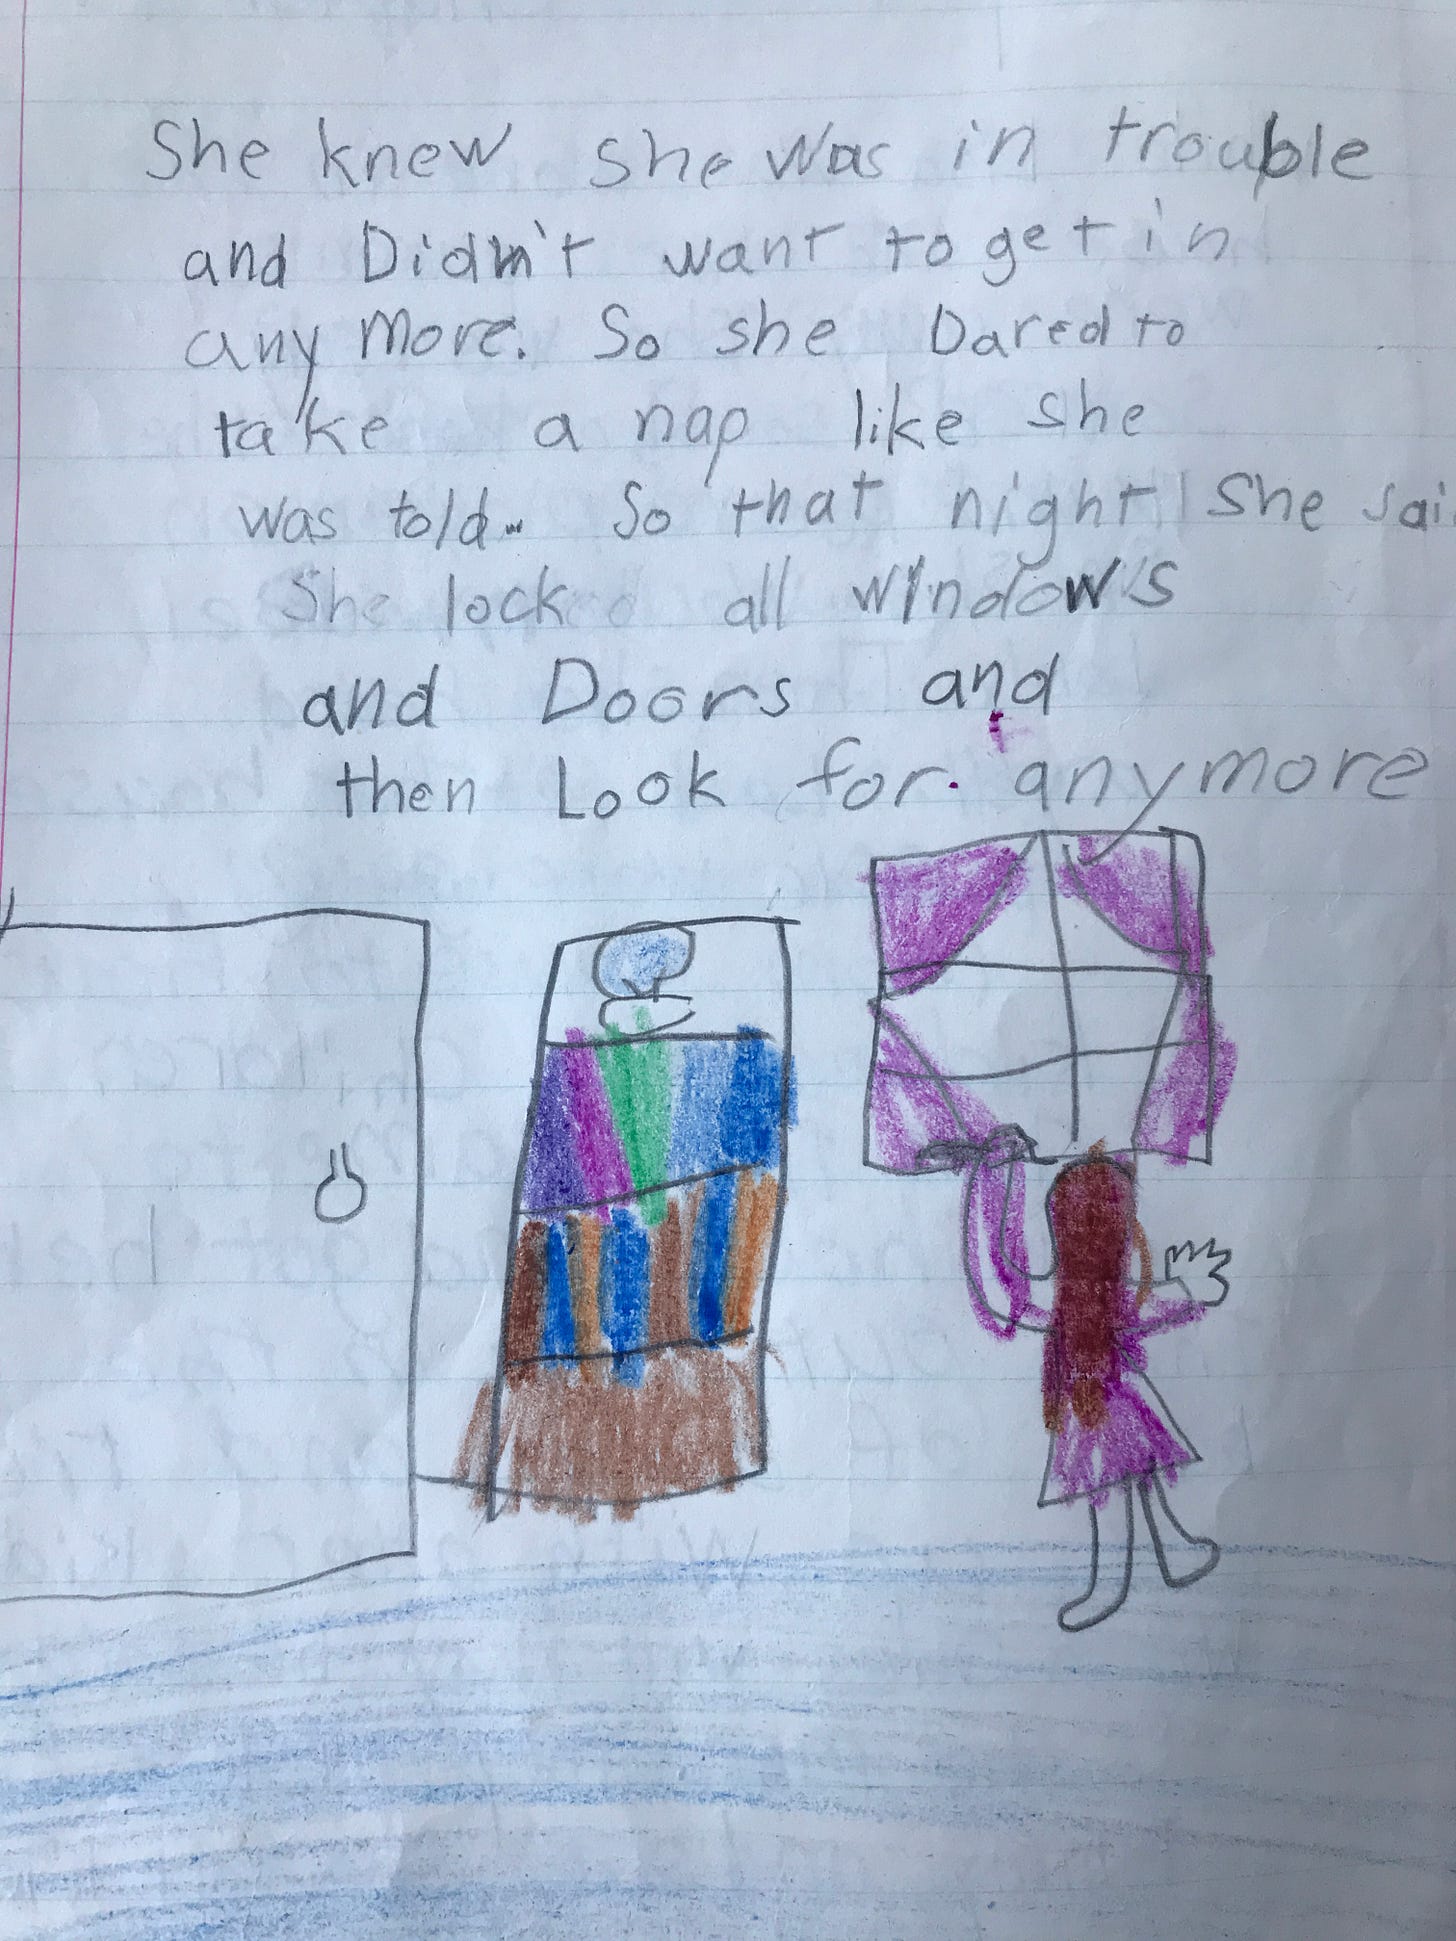 She knew she was in trouble
and Didn't want to get in
any more. So she Dared to
take a nap like she
was told. So that night she sai
She locked all windows
and Doors and
then Look for anymore